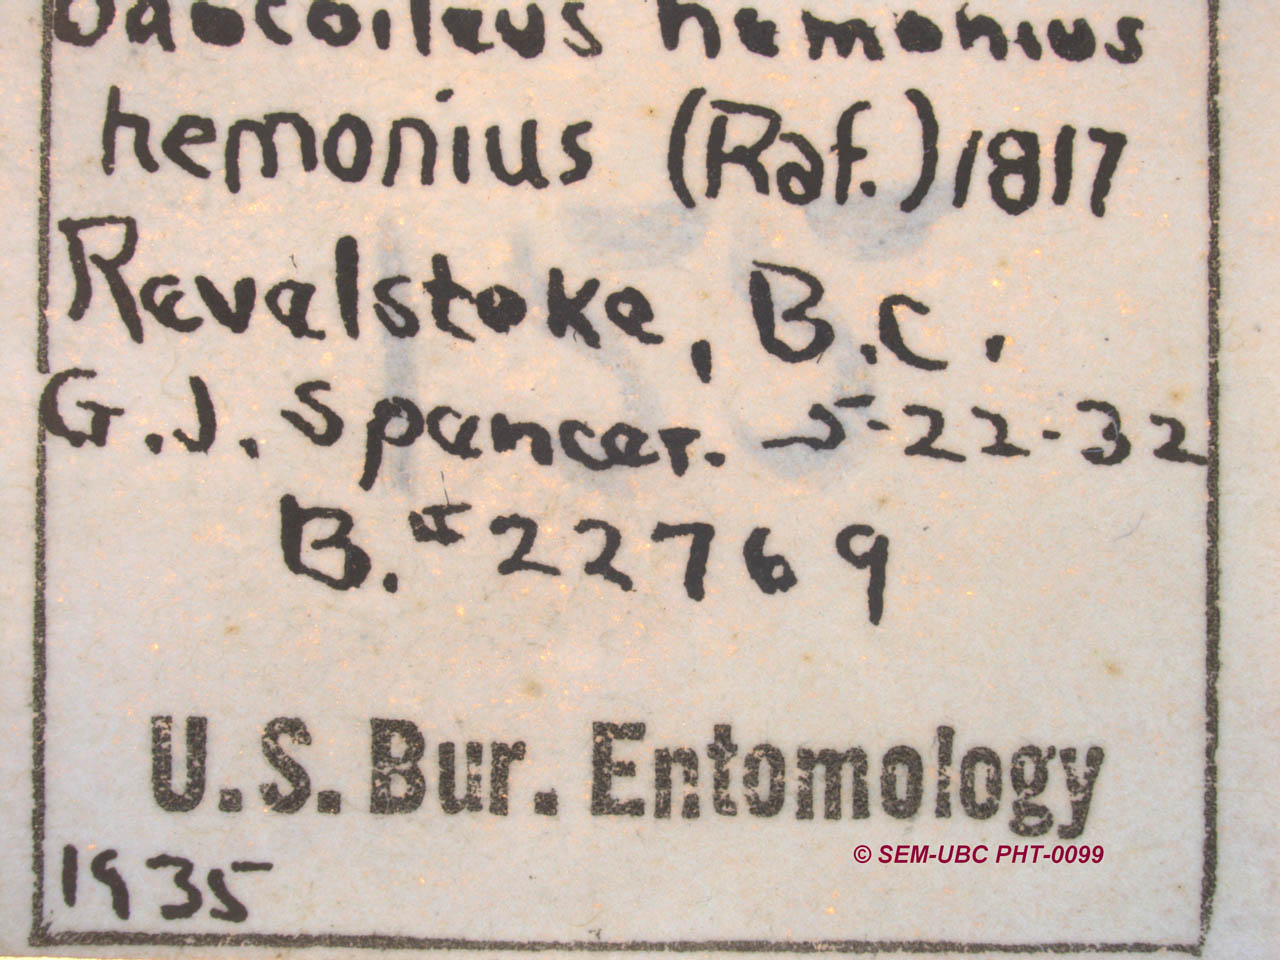 Odocoileus hemonius
hemonius (Raf.) 1817
Revelstoke, B.C.
G.J. Spencer. 5-22-32
B. # 22769
U.S. Bur. Entomology
© SEM-UBC PHT-0099
1935